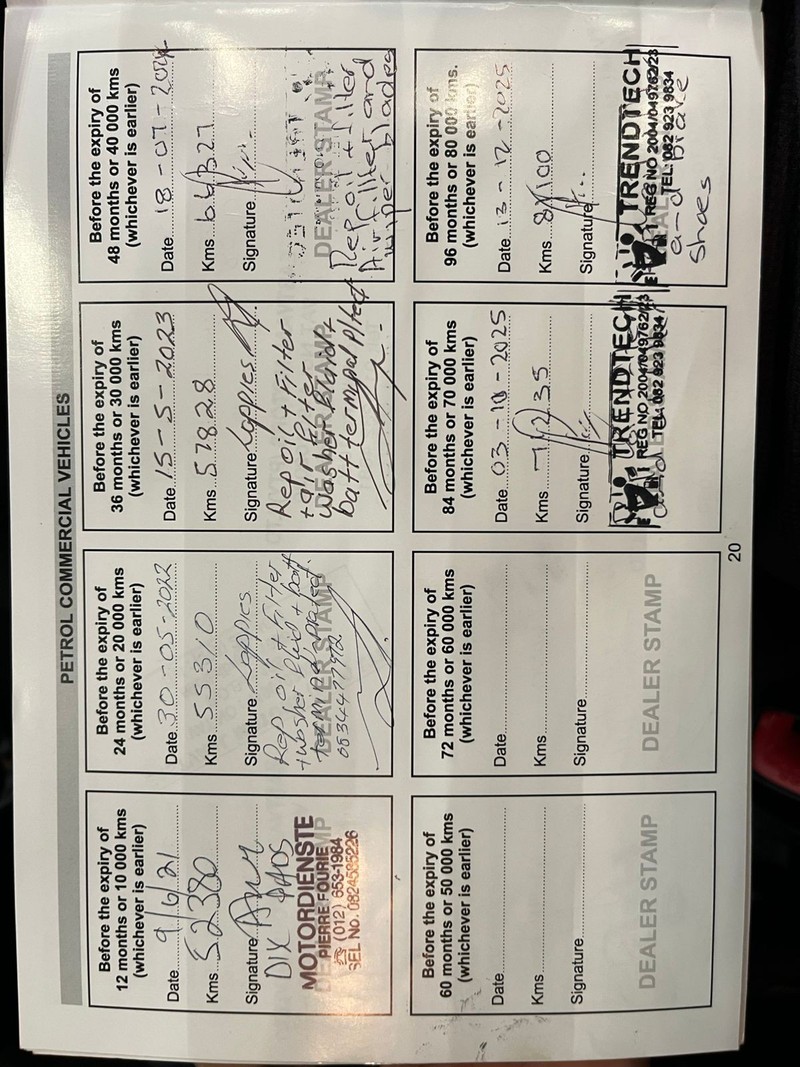 PETROL COMMERCIAL VEHICLES
Before the expiry of
12 months or 10 000 kms
(whichever is earlier)
Date 9/6/21
Kms 52380
Signature
DIX PADS
DEALER STAMP
MOTORDIENSTE
PIERRE FOURIE
☎ (012) 653-1984
SEL No. 0824585226
Before the expiry of
24 months or 20 000 kms
(whichever is earlier)
Date 30-05-2022
Kms 55310
Signature Lappies
Rep oil + Filter
+ washer fluid + batt
DEALER STAMP
0834477972
Before the expiry of
36 months or 30 000 kms
(whichever is earlier)
Date 15-5-2023
Kms 57828
Signature Lappies
Rep oil + Filter
+ air Filter
washer
DEALER STAMP
batt terminal
Before the expiry of
48 months or 40 000 kms
(whichever is earlier)
Date 18-07-2024
Kms
Signature
DEALER STAMP
Rep oil + Filter
Air filter and
wiper blades
Before the expiry of
60 months or 50 000 kms
(whichever is earlier)
Date
Kms
Signature
DEALER STAMP
Before the expiry of
72 months or 60 000 kms
(whichever is earlier)
Date
Kms
Signature
DEALER STAMP
Before the expiry of
84 months or 70 000 kms
(whichever is earlier)
Date 03-10-2025
Kms
Signature
TRENDTECH
REG NO 2004/049762/23
TEL: 082 923 9834
Before the expiry of
96 months or 80 000 kms.
(whichever is earlier)
Date 13-12-2025
Kms
Signature
TRENDTECH
REG NO 2004/049762/23
TEL: 082 923 9834
and Brake
shoes
20